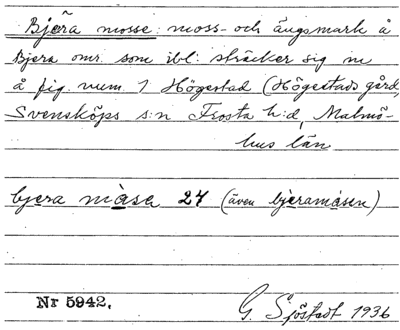 Bjära mosse: moss- och ängsmark å
Bjera omr. som ibl. sträcker sig in
å fig. num. 1 Högestad (Högestads gård,
Svensköps s:n Frosta h:d, Malmö-
hus län
bjera màsen 24 (även bjeramåsen)
Nr 5942.
G. Sjöstedt 1936